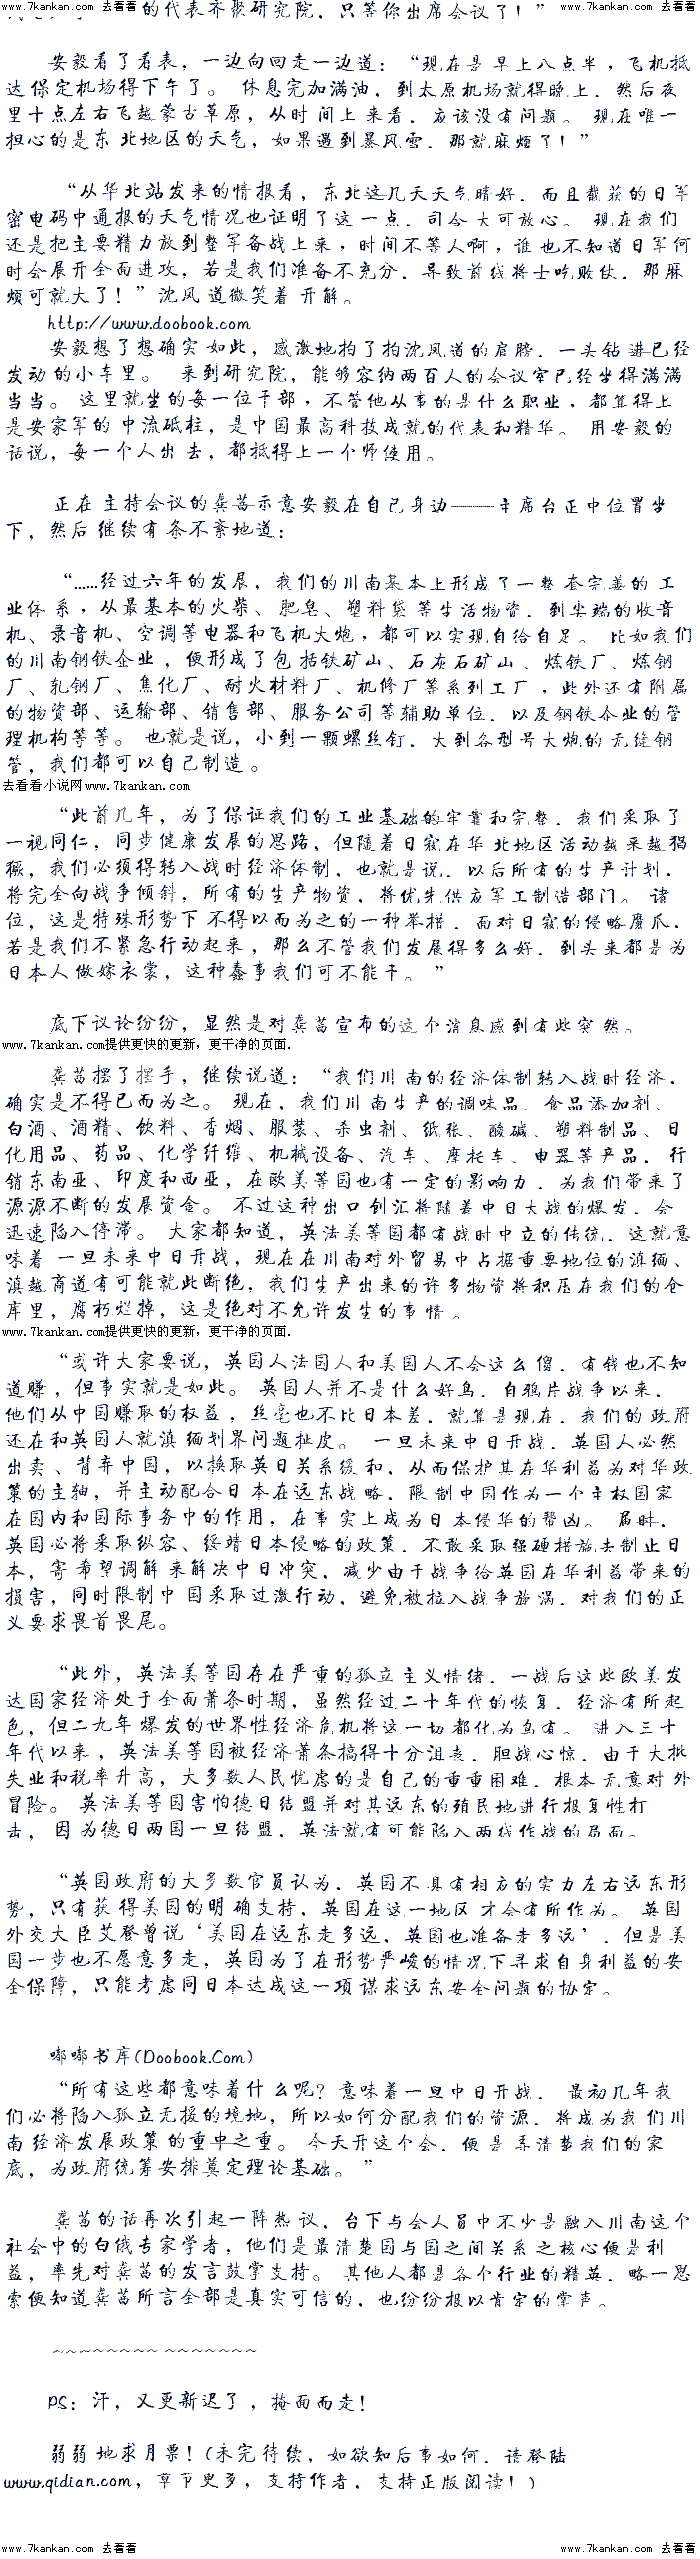 www.7kankan.com 去看看
www.7kankan.com 去看看
的代表齐聚研究院，只等你出席会议了！”
安毅看了看表，一边向回走一边道：“现在是早上八点半，飞机抵
达保定机场得下午了。休息完加满油，到太原机场就得晚上，然后夜
里十点左右飞越蒙古草原，从时间上来看，应该没有问题。现在唯一
担心的是东北地区的天气，如果遇到暴风雪，那就麻烦了！”
“从华北站发来的情报看，东北这几天天气晴好，而且截获的日军
密电码中通报的天气情况也证明了这一点，司令大可放心。现在我们
还是把主要精力放到整军备战上来，时间不等人啊，谁也不知道日军何
时会展开全面进攻，若是我们准备不充分，导致前线将士吃败仗，那麻
烦可就大了！”沈凤道微笑着开解。
http://www.doobook.com
安毅想了想确实如此，感激地拍了拍沈凤道的肩膀，一头钻进已经
发动的小车里。来到研究院，能够容纳两百人的会议室已经坐得满满
当当。这里就坐的每一位干部，不管他从事的是什么职业，都算得上
是安家军的中流砥柱，是中国最高科技成就的代表和精华。用安毅的
话说，每一个人出去，都抵得上一个师使用。
正在主持会议的龚茜示意安毅在自己身边——主席台正中位置坐
下，然后继续有条不紊地道：
“......经过六年的发展，我们的川南基本上形成了一整套完善的工
业体系，从最基本的火柴、肥皂、塑料袋等生活物资，到尖端的收音
机、录音机、空调等电器和飞机大炮，都可以实现自给自足。比如我们
的川南钢铁企业，便形成了包括铁矿山、石灰石矿山、炼铁厂、炼钢
厂、轧钢厂、焦化厂、耐火材料厂、机修厂等系列工厂，此外还有附属
的物资部、运输部、销售部、服务公司等辅助单位，以及钢铁企业的管
理机构等等。也就是说，小到一颗螺丝钉，大到各型号大炮的无缝钢
管，我们都可以自己制造。
去看看小说网www.7kankan.com
“此前几年，为了保证我们的工业基础的牢靠和完整，我们采取了
一视同仁，同步健康发展的思路，但随着日寇在华北地区活动越来越猖
獗，我们必须得转入战时经济体制，也就是说，以后所有的生产计划，
将完全向战争倾斜，所有的生产物资，将优先供应军工制造部门。诸
位，这是特殊形势下不得以而为之的一种举措，面对日寇的侵略魔爪，
若是我们不紧急行动起来，那么不管我们发展得多么好，到头来都是为
日本人做嫁衣裳，这种蠢事我们可不能干。”
底下议论纷纷，显然是对龚茜宣布的这个消息感到有些突然。
www.7kankan.com提供更快的更新，更干净的页面.
龚茜摆了摆手，继续说道：“我们川南的经济体制转入战时经济，
确实是不得已而为之。现在，我们川南生产的调味品、食品添加剂、
白酒、酒精、饮料、香烟、服装、杀虫剂、纸张、酸碱、塑料制品、日
化用品、药品、化学纤维、机械设备、汽车、摩托车、电器等产品，行
销东南亚、印度和西亚，在欧美等国也有一定的影响力，为我们带来了
源源不断的发展资金。不过这种出口创汇将随着中日大战的爆发，会
迅速陷入停滞。大家都知道，英法美等国都有战时中立的传统，这就意
味着一旦未来中日开战，现在在川南对外贸易中占据重要地位的滇缅、
滇越商道有可能就此断绝，我们生产出来的许多物资将积压在我们的仓
库里，腐朽烂掉，这是绝对不允许发生的事情。
www.7kankan.com提供更快的更新，更干净的页面.
“或许大家要说，英国人法国人和美国人不会这么傻，有钱也不知
道赚，但事实就是如此。英国人并不是什么好鸟，自鸦片战争以来，
他们从中国赚取的权益，丝毫也不比日本差，就算是现在，我们的政府
还在和英国人就滇缅划界问题扯皮。一旦未来中日开战，英国人必然
出卖、背弃中国，以换取英日关系缓和，从而保护其在华利益为对华政
策的主轴，并主动配合日本在远东战略，限制中国作为一个主权国家
在国内和国际事务中的作用，在事实上成为日本侵华的帮凶。届时，
英国必将采取纵容、绥靖日本侵略的政策，不敢采取强硬措施去制止日
本，寄希望调解来解决中日冲突，减少由于战争给英国在华利益带来的
损害，同时限制中国采取过激行动，避免被拉入战争旋涡，对我们的正
义要求畏首畏尾。
“此外，英法美等国存在严重的孤立主义情绪，一战后这些欧美发
达国家经济处于全面萧条时期，虽然经过二十年代的恢复，经济有所起
色，但二九年爆发的世界性经济危机将这一切都化为乌有。进入三十
年代以来，英法美等国被经济萧条搞得十分沮丧，胆战心惊，由于大批
失业和税率升高，大多数人民忧虑的是自己的重重困难，根本无意对外
冒险。英法美等国害怕德日结盟并对其远东的殖民地进行报复性打
击，因为德日两国一旦结盟，英法就有可能陷入两线作战的局面。
“英国政府的大多数官员认为，英国不具有相应的实力左右远东形
势，只有获得美国的明确支持，英国在这一地区才会有所作为。英国
外交大臣艾登曾说‘美国在远东走多远，英国也准备走多远’，但是美
国一步也不愿意多走，英国为了在形势严峻的情况下寻求自身利益的安
全保障，只能考虑同日本达成这一项谋求远东安全问题的协定。
嘟嘟书库(Doobook.Com)
“所有这些都意味着什么呢？意味着一旦中日开战，最初几年我
们必将陷入孤立无援的境地，所以如何分配我们的资源，将成为我们川
南经济发展政策的重中之重。今天开这个会，便是弄清楚我们的家
底，为政府统筹安排奠定理论基础。”
龚茜的话再次引起一阵热议，台下与会人员中不少是融入川南这个
社会中的白俄专家学者，他们是最清楚国与国之间关系之核心便是利
益，率先对龚茜的发言鼓掌支持。其他人都是各个行业的精英，略一思
索便知道龚茜所言全部是真实可信的，也纷纷报以肯定的掌声。
~~~~~~~~ ~~~~~~~
PS：汗，又更新迟了，掩面而走！
弱弱地求月票！(未完待续，如欲知后事如何，请登陆
www.qidian.com，章节更多，支持作者，支持正版阅读！)
www.7kankan.com 去看看
www.7kankan.com 去看看